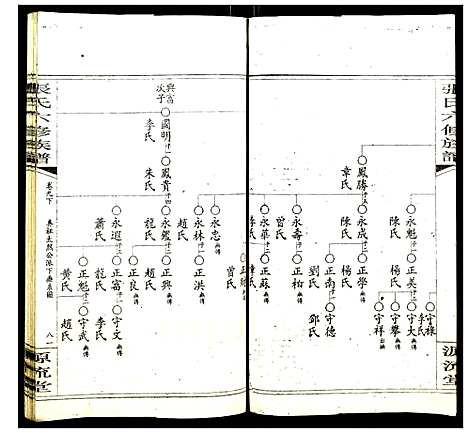 張氏六修族譜
源流堂
永魁
陳氏
正美
楊氏
守祿
李氏
守大
守攀
守祥
鳳勝
章氏
永成
陳氏
正學
楊氏
正南
劉氏
守德
鄧氏
永壽
曾氏
正松
永華
正蘇
興富
次子
國明
李氏
鳳貴
朱氏
永忠
永林
趙氏
正洪
曾氏
永鑑
龍氏
正興
趙氏
正良
龍氏
永遐
蕭氏
正富
龍氏
守文
李氏
正魁
黃氏
守武
趙氏
張氏六修族譜
卷九下
八一
源流堂